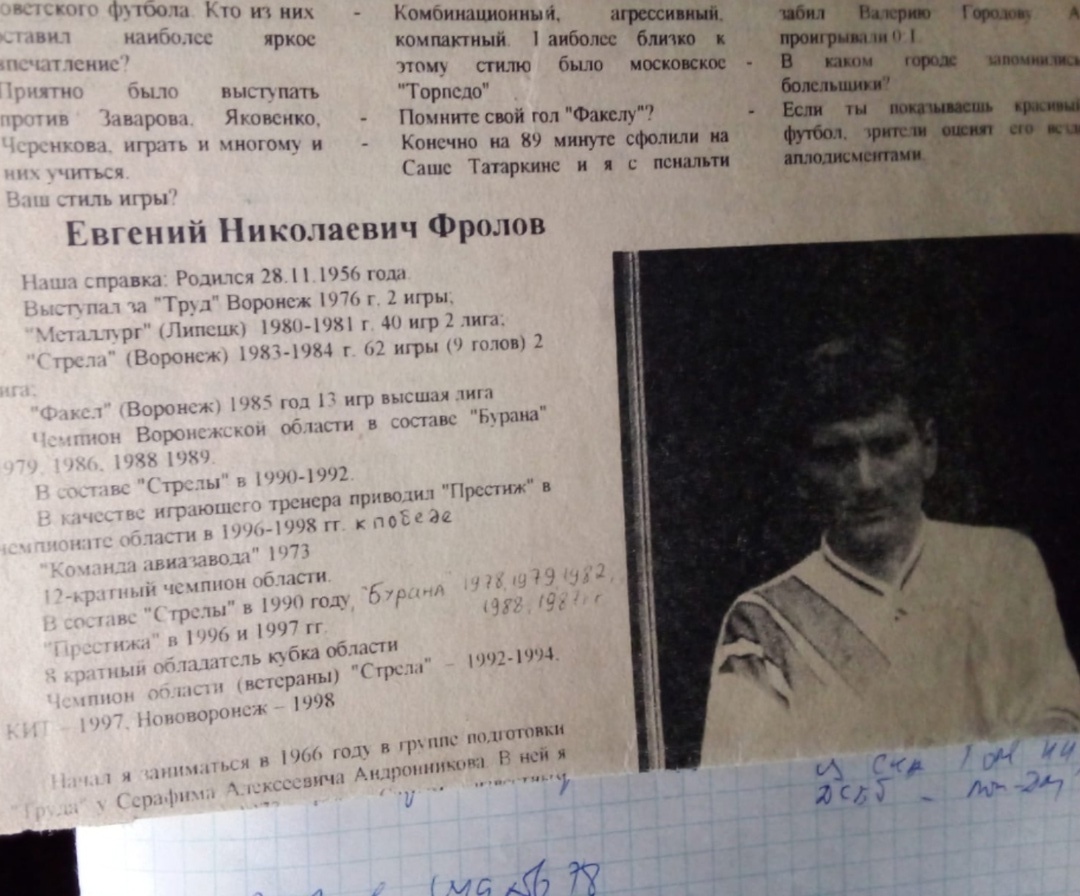 советского футбола. Кто из них
оставил наиболее яркое
впечатление?
Приятно было выступать
против Заварова, Яковенко,
Черенкова, играть и многому и
них учиться.
Ваш стиль игры?
- Комбинационный, агрессивный,
компактный. Наиболее близко к
этому стилю было московское
"Торпедо"
- Помните свой гол "Факелу"?
- Конечно на 89 минуте сфолили на
Саше Татаркине и я с пенальти
забил Валерию Городову. А
проигрывали 0:1
- В каком городе запомнились
болельщики?
- Если ты показываешь красивый
футбол, зрители оценят его везде
аплодисментами.
Евгений Николаевич Фролов
Наша справка: Родился 28.11.1956 года.
Выступал за "Труд" Воронеж 1976 г. 2 игры;
"Металлург" (Липецк) 1980-1981 г. 40 игр 2 лига;
"Стрела" (Воронеж) 1983-1984 г. 62 игры (9 голов) 2
лига;
"Факел" (Воронеж) 1985 год 13 игр высшая лига
Чемпион Воронежской области в составе "Бурана"
1979, 1986, 1988 1989.
В составе "Стрелы" в 1990-1992.
В качестве играющего тренера приводил "Престиж" в
чемпионате области в 1996-1998 гг. к победе
"Команда авиазавода" 1973
12-кратный чемпион области.
В составе "Стрелы" в 1990 году, "Бурана" 1978, 1979, 1982,
1988, 1987 гг
"Престижа" в 1996 и 1997 гг.
8 кратный обладатель кубка области
Чемпион области (ветераны) "Стрела" – 1992-1994.
КИТ – 1997, Нововоронеж – 1998
Начал я заниматься в 1966 году в группе подготовки
"Труда" у Серафима Алексеевича Андронникова. В ней я
78